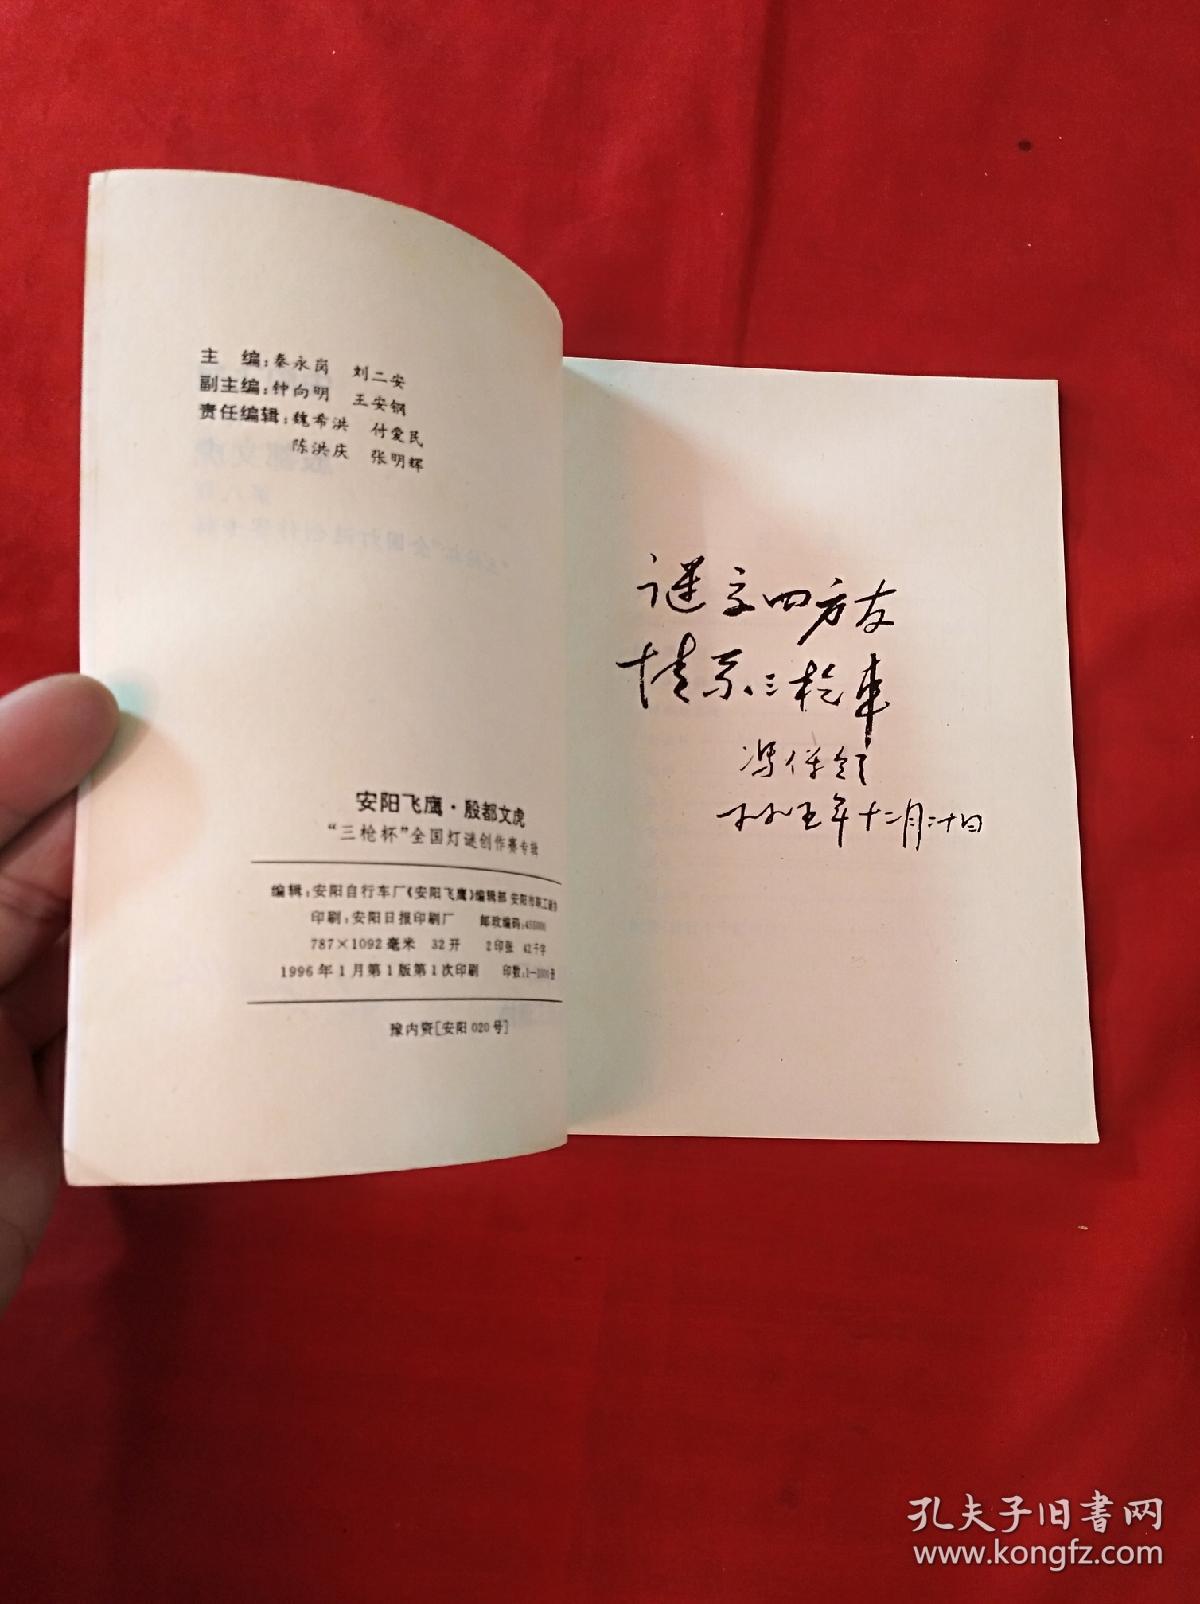 主　编：秦永岗　刘二安
副主编：钟向明　王安钢
责任编辑：魏希洪　付爱民
陈洪庆　张明辉
安阳飞鹰·殷都文虎
“三枪杯”全国灯谜创作赛专辑
编辑：安阳自行车厂《安阳飞鹰》编辑部 安阳市职工谜协
印刷：安阳日报印刷厂　邮政编码：455000
787×1092毫米　32开　2印张　42千字
1996年1月第1版第1次印刷　印数：1—1000册
豫内资[安阳 020号]
谜交四方友
情系三枪車
冯保
年十二月二十日
孔夫子旧书网
www.kongfz.com